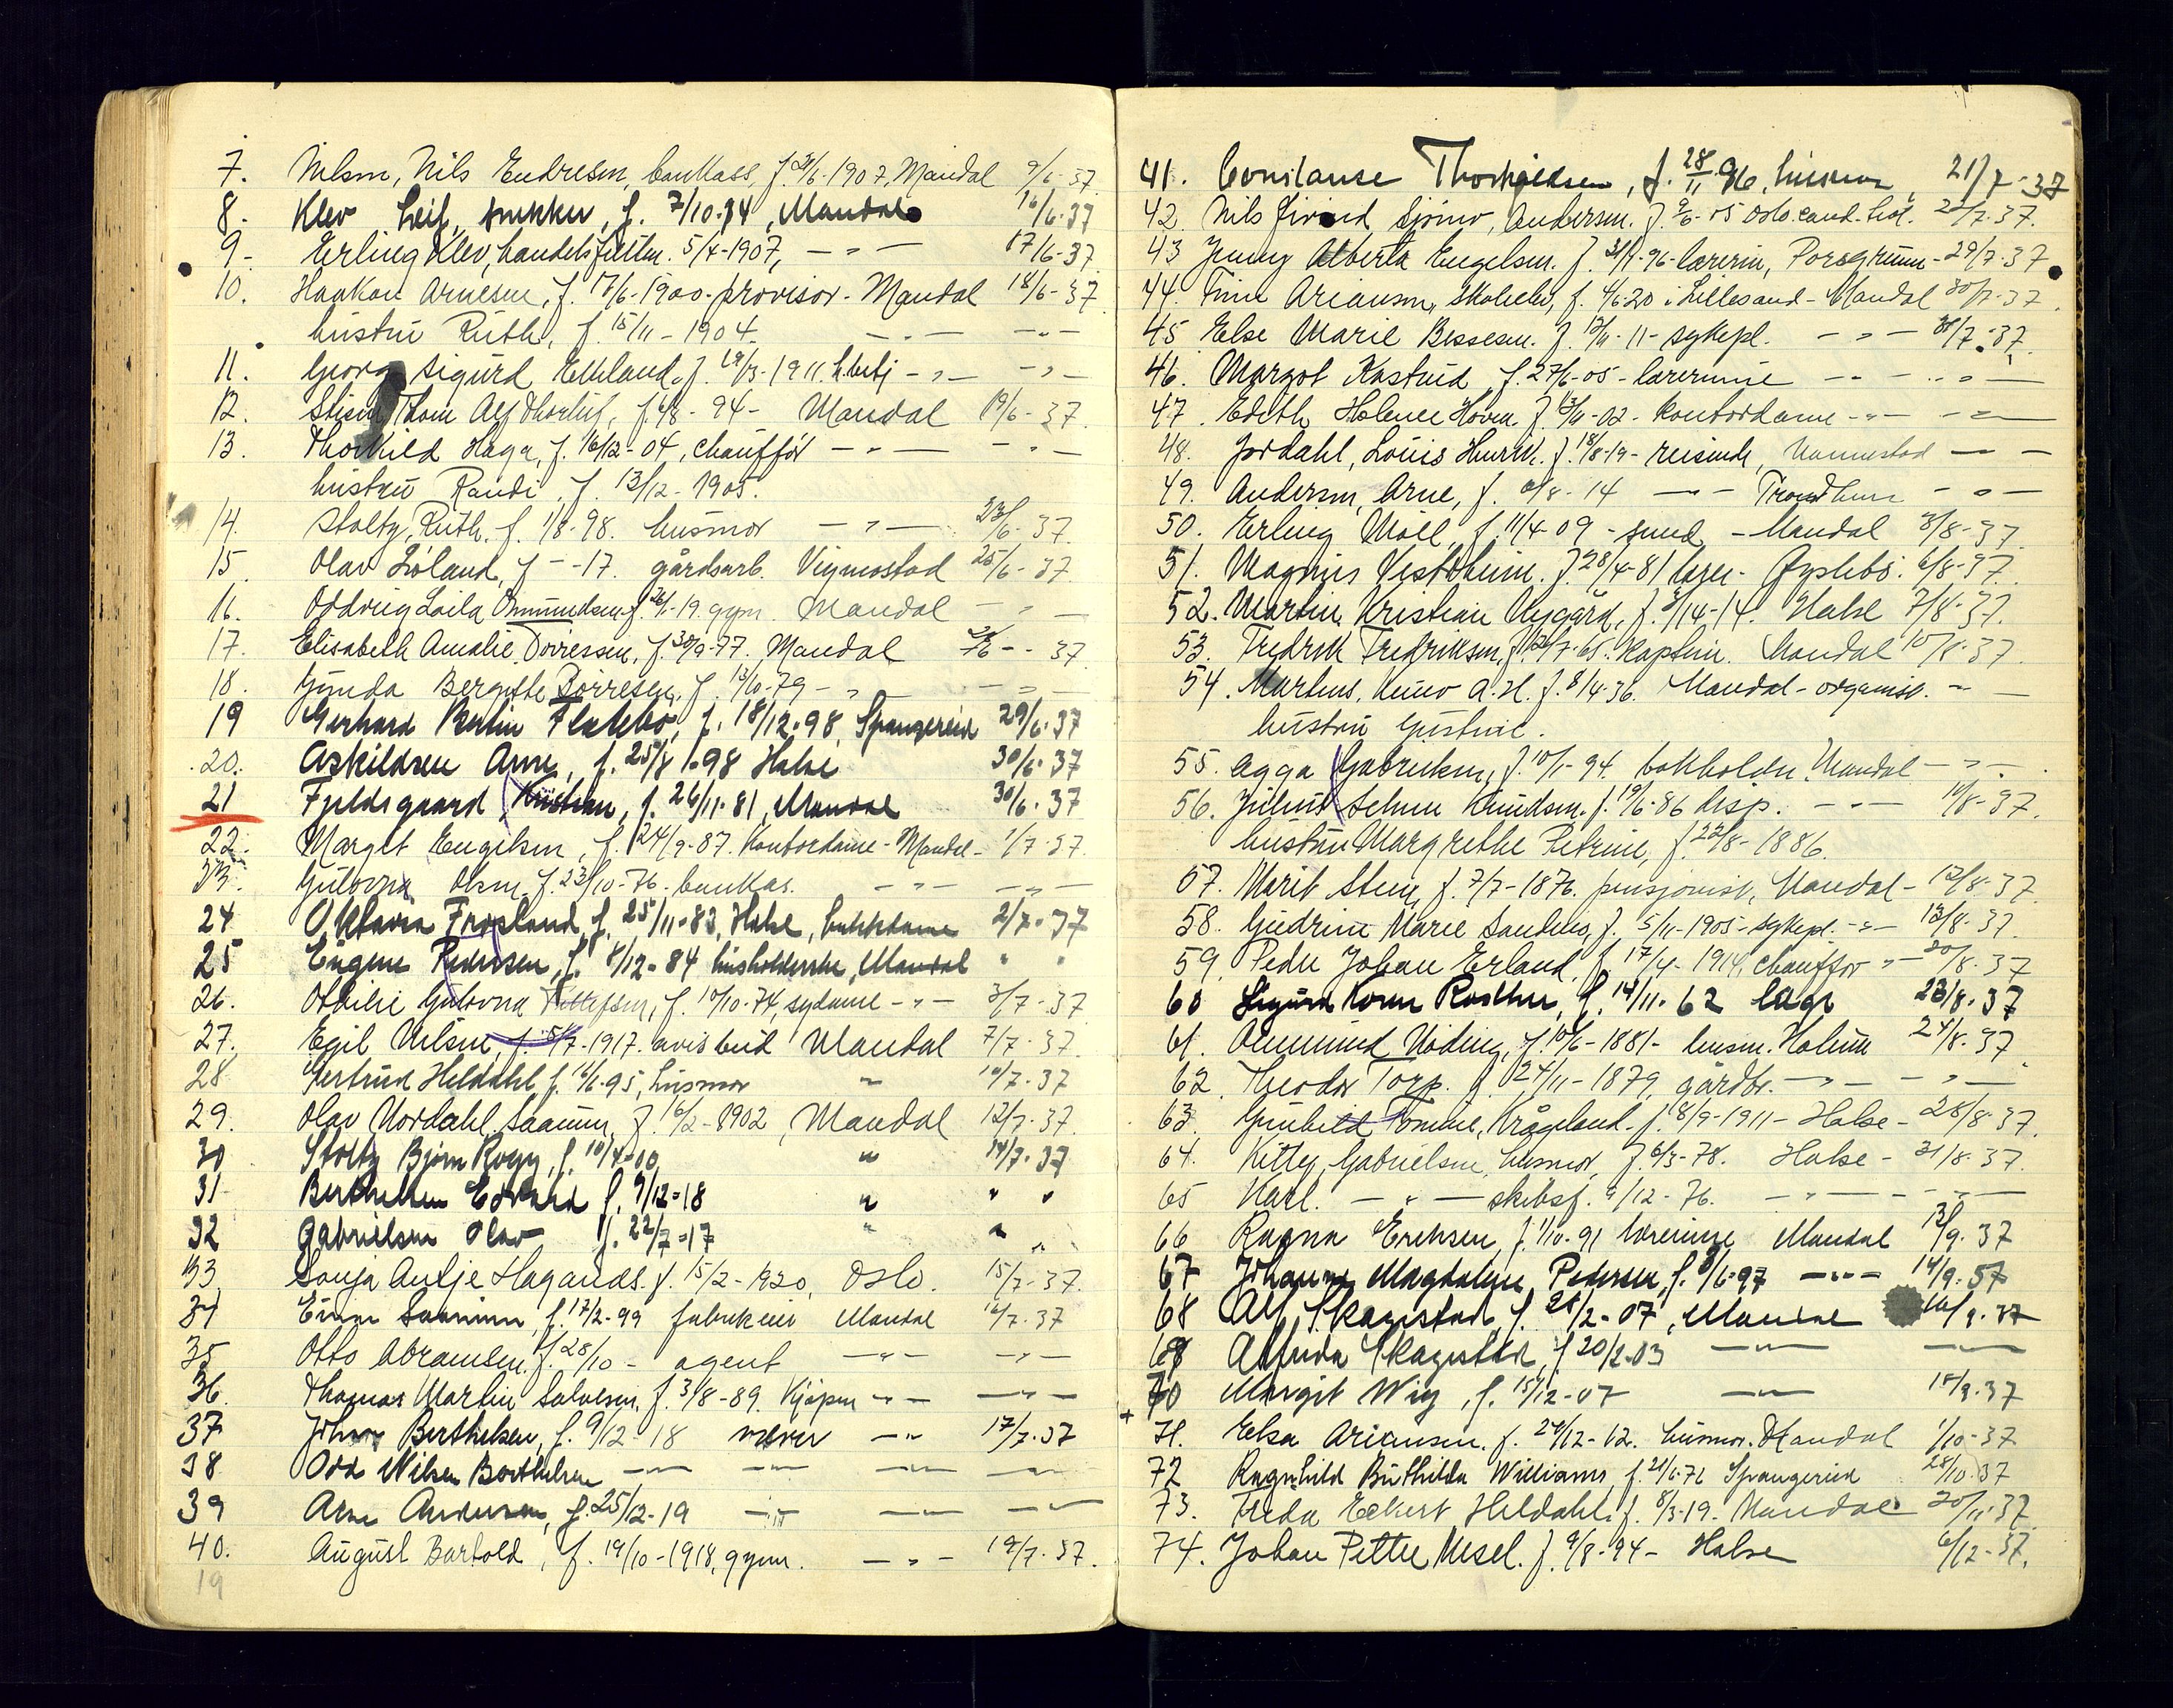 7. Nilsen, Nils Endresen, bankass, f. 21/6-1907, Mandal 9/6-37.
8. Klev Leif, trykker, f. 7/10-14, Mandal 16/6-37
9- Erling Klev, handelsfullm. 5/4-1907, — " — 17/6-37
10. Haakon Arnesen, f. 17/6-1900- provisor- Mandal 18/6-37
hustru Ruth, f. 15/11-1904- — " — — " —
11. Georg Sigurd Ekeland, f. 1911. — " — — " —
12. Thom Alf Thorleif, f. 4/8-94- Mandal 19/6-37.
13. Thorkild Haga, f. 16/12-04, chaufför — " — — " —
hustru Randi, f. 13/12-1905.
14. Stoltz, Ruth. f. 1/8-98. husmor — " — 23/6-37.
15. Olav Lioland, f - -17. gårdsarb. Vigmostad 25/6-37
16. Oddveig Laila Ommundsen f. 26/1-19. gym. Mandal — " —
17. Elisabeth Amalie f. 30/9-77. Mandal - - 37
18. Gunda Bergitte Borresen, f. 13/10-79- " — — " —
19 Gerhard Martin Flakkebø, f. 18/12-98, Spangereid 29/6-37
20. Askildsen Arne, f. 25/8 1-98 Halse 30/6-37
21 Fjeldsgaard Kristian, f. 26/11-81, Mandal 30/6-37
22. Margit Engelsen, f. 24/9-87. Kontordame- Mandal- 1/7-37.
23. Gulovna Olsen, f. 23/10-76- bankas. — " — — " —
24 Oktavia Frøsland, f. 25/11-83, Halse, 2/7-37
25 Eugenie Pedersen, f. 8/12-84 husholderske, Mandal " "
26. Othilie Gulovna f. 10/10-74, sydame - " - 3/7-37
27. Egil Nilsen, f. 5/7-1917. avisbud Mandal 7/7-37.
28 Gertrud Heldahl f. 16/6-95, husmor " 10/7-37
29. Olav Nordahl Saanum, f. 16/2-1902, Mandal 12/7-37.
30 Stoltz Bjørn Rogg, f. 10/4-00, " 14/7-37
31 Berthelsen Edvard f. 9/12-18 " " "
32 Gabrielsen Olav f. 22/7-17 " " "
33 Sonja Antje Haganæs. f. 15/2-1920, Oslo. 15/7-37.
34 Einar Saanum, f. 17/2-99 fabrikeier Mandal 16/7-37
35 Otto Abramsen. f. 28/10- agent — " — — " —
36. Thomas Martin Salvesen, f. 3/8-89. Kjøpm - " - — " —
37 Johan Berthelsen, f. 9/12-18 murer — " 17/7-37
38 Odd Nilsen Berthelsen — " — — " — — " — — " —
39 Arne Andersen, f. 25/12-19 — " — — " — — " —
40. August Bartold, f. 19/10-1918, gym. — " — 19/7-37.
19
41. Constanse Thorkildsen, f. 28/11-96, husmor, 21/7-37
42. Nils Eivind Andersen. f. 9/6-05 Oslo. cand. 22/7-37.
43 Jenny Alberta Engelsen. f. 31/1-96- lærerin, Porsgrunn- 29/7-37
44. Finn Ariansen, skoleelev, f. 4/6-20 i Lillesand- Mandal 30/7-37.
45 Else Marie Bessesen. f. 13/11-11- sykepl. — " — 31/7-37.
46. Margot Kastrud, f. 27/6-05- lærerinne — " — — " —
47. Edith Helene Hoven. f. 13/11-02- kontordame - " - — " —
48. Jordahl, Louis Henrik. f. 18/8-19- reisende, — " —
49. Andersen, Arne, f. 2/8-14 — " — Trondheim — " —
50. Erling Moll, f. 11/4-09- smed - Mandal 3/8-37
51. Magnus Vestrheim. f. 28/4-81 lærer- Øyslebø. 6/8-37.
52. Martin Kristian Nygård, f. 3/1 14-14. Halse 7/8-37.
53. Fredrik Fredriksen, f. 12/7-65. Kaptein. Mandal 10/8-37.
54. Martens, A.H. f. 8/4-36. Mandal- organist. - " —
hustru Gustava.
55. Agga Gabrielsen, f. 10/1-94. bokholder. Mandal — " —.
56. Julius Selmer Knudsen. f. 19/6-86 disp. — " — 11/8-37.
hustru Margrethe Petrine, f. 22/8-1886.
57. Marit Steen, f. 7/7-1876. pensjonist, Mandal - 12/8-37.
58. Gudrun Marie Sandnes, f. 5/11-1905- sykepl. - " - 13/8-37.
59. Peder Johan Erland, f. 17/4-1914, chauffør " — 20/8-37
60 Sigurd f. 14/11-62 læge 23/8-37
61. Ommund Uøding, f. 10/6-1881- lensm. Holum 24/8-37
62. Theodor Torp. f. 24/11-1879, gårdbr. — " — — " —
63. Gunhild Tomine, Krågeland. f. 8/9-1911- Halse- 28/8-37.
64. Kitty Gabrielsen, husmor, f. 6/3-78. Halse- 31/8-37.
65 Karl. — " — skibsf. 9/12-76. — " — — " —
66 Ragna Eriksen, f. 1/10-91 lærerinne Mandal 13/9-37
67 Johanne Magdalene Pedersen, f. 8/6-97 — " — 14/9-37
68 Alf Skagestad, f. 28/2-07, Mandal 16/9-37
69 Alfrida Skagestad, f 20/2-03 — " — — " —
70 Margit Wig, f. 15/12-07 — " — 18/9-37
71. Elsa Ariansen. f. 24/12-12. husmor. Mandal 1/10-37
72 Ragnhild Williams, f. 21/6-72 Spangereid 28/10-37
73. Freda Eckert Heldahl, f. 8/3-19. Mandal 20/11-37
74. Johan Petter Mesel. f. 9/8-94- Halse 6/12-37.